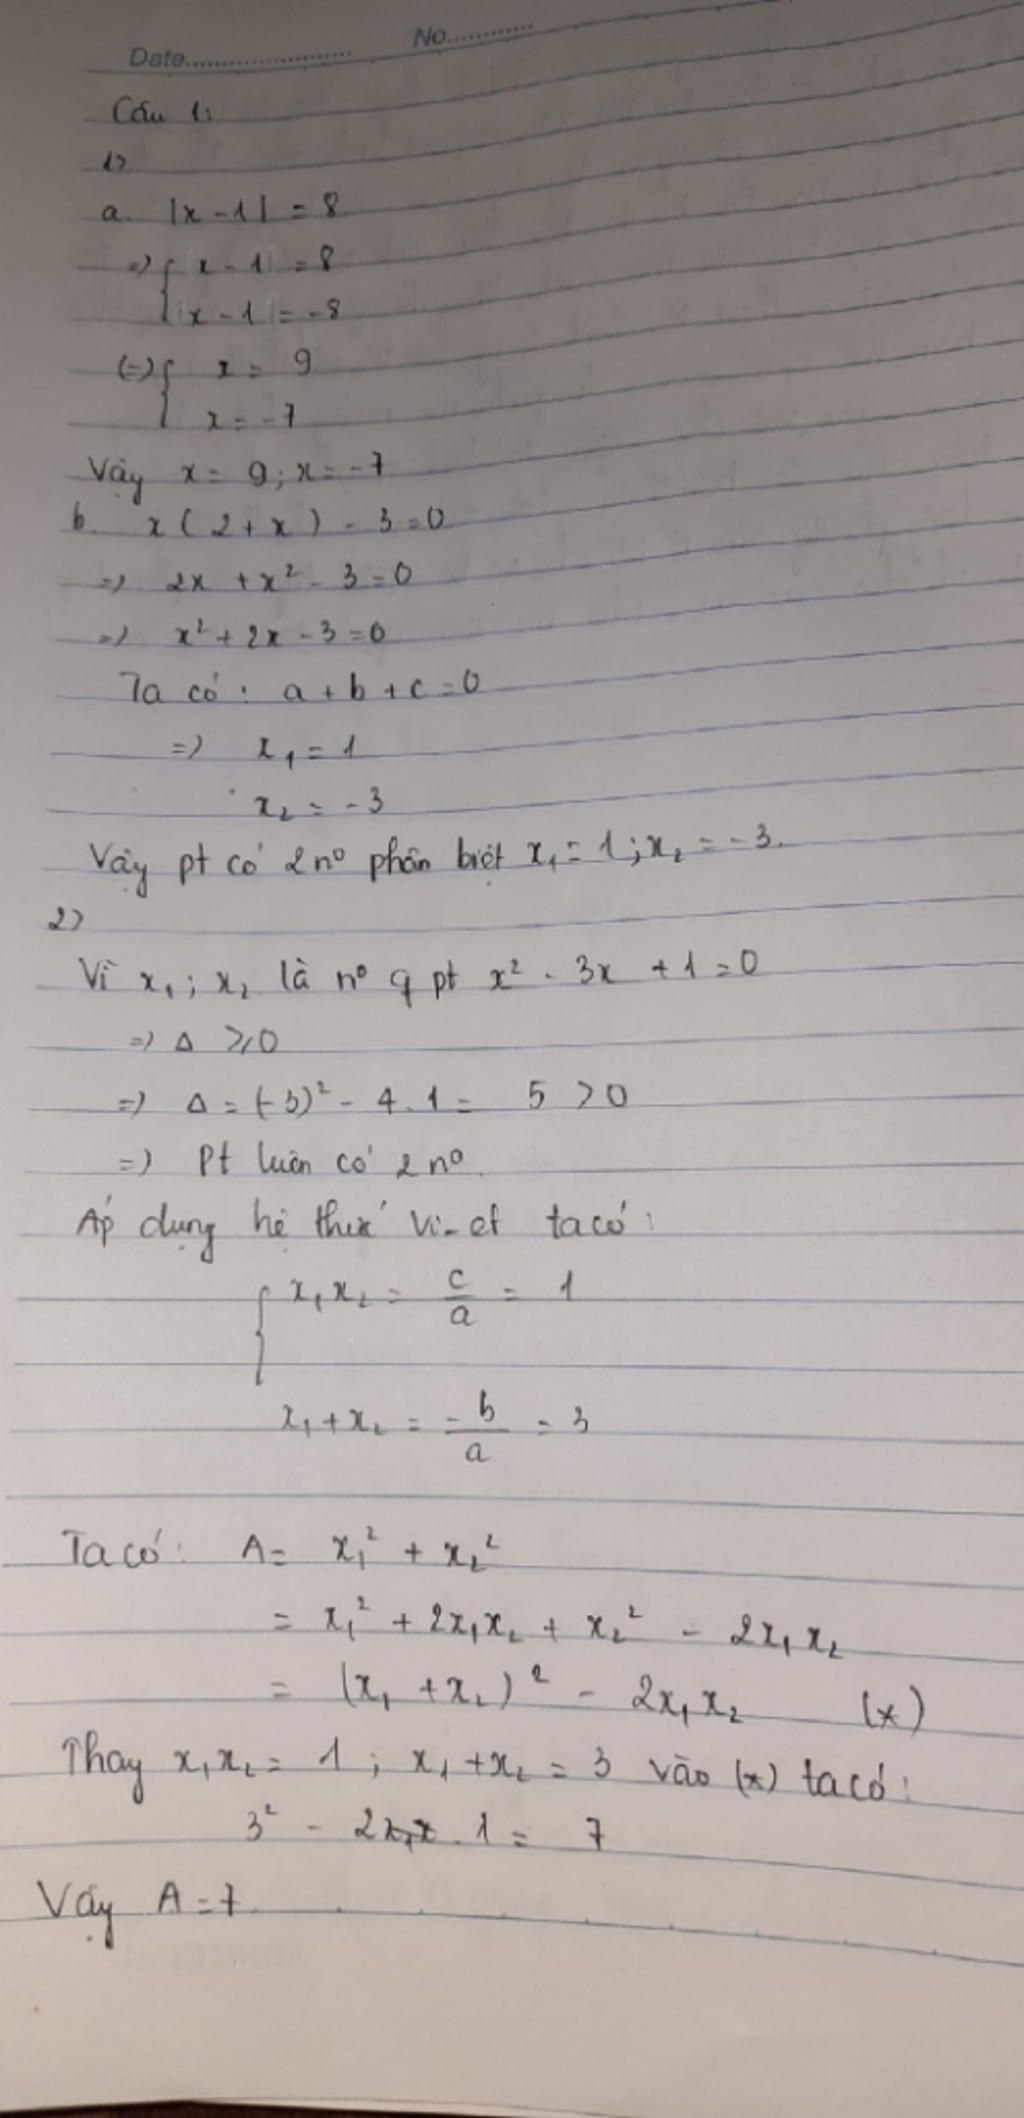 Date.................... No...........
Câu 1:
1>
a. |x - 1| = 8
=> { x - 1 = 8
x - 1 = -8
(=) { x = 9
x = -7
Vậy x = 9; x = -7
b. x(2 + x) - 3 = 0
=> 2x + x² - 3 = 0
=> x² + 2x - 3 = 0
Ta có: a + b + c = 0
=> x₁ = 1
x₂ = -3
Vậy pt có 2 n° phân biệt x₁ = 1; x₂ = -3.
2>
Vì x₁; x₂ là n° q pt x² - 3x + 1 = 0
=> Δ ⩾ 0
=> Δ = (-3)² - 4.1 = 5 > 0
=> Pt luôn có 2 n°.
Áp dụng hệ thức Vi-et ta có:
{ x₁x₂ = c/a = 1
x₁ + x₂ = -b/a = 3
Ta có: A = x₁² + x₂²
= x₁² + 2x₁x₂ + x₂² - 2x₁x₂
= (x₁ + x₂)² - 2x₁x₂ (*)
Thay x₁x₂ = 1; x₁ + x₂ = 3 vào (*) ta có:
3² - 2 . 1 = 7
Vậy A = 7